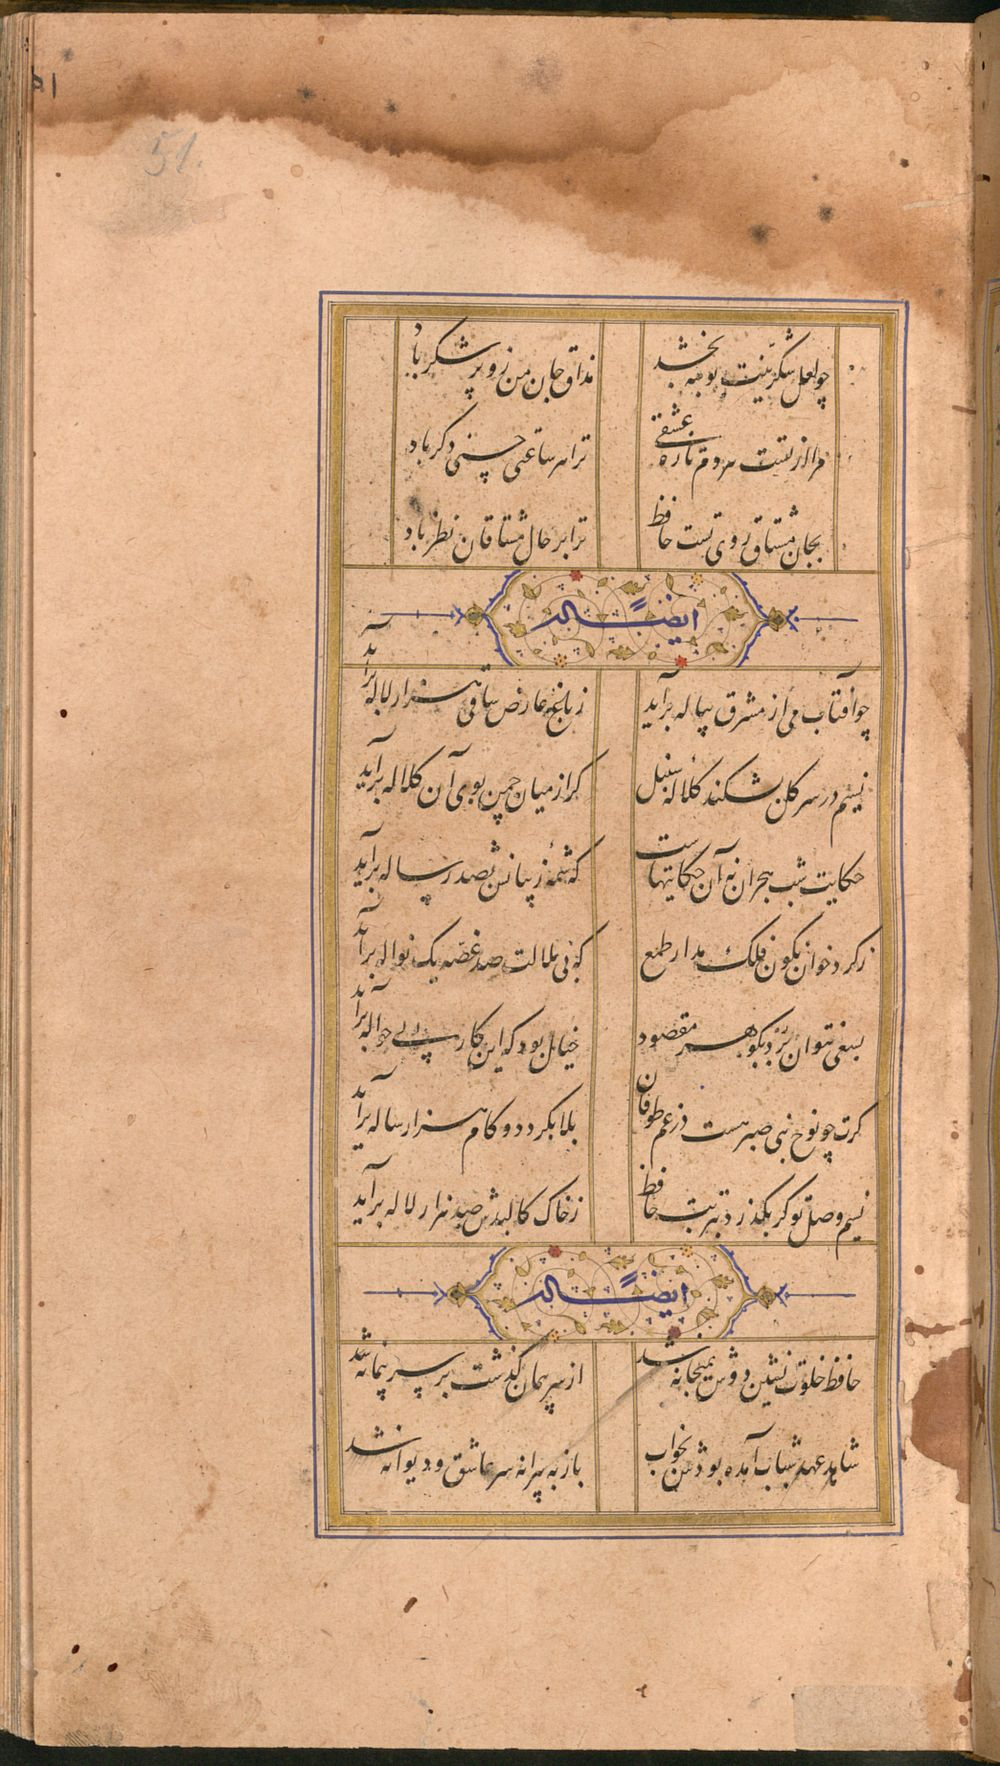 ۵۱
51.
چو لعل شکرینت بوسه بخشد
مذاق جان من زو پر شکر باد
مرا از تست هر دم تازه عشقی
ترا هر ساعتی حسنی دکر باد
بجان مشتاق روی تست حافظ
ترا بر حال مشتاقان نظر باد
ایضاً له
چو آفتاب می از مشرق پیاله برآید
ز باغ عارض ساقی هزار لاله برآید
نسیم در سر کل بشکند کلاله سنبل
کر از میان چمن بوی آن کلاله برآید
حکایت شب هجران نه آن حکایتهاست
که شمهٔ ز بیانش بصد رساله برآید
ز کرد خوان نکون فلک مدار طمع
که بی ملالت صد غصه یک نواله برآید
بسعی نتوان برد بکوهر مقصود
خیال بود که این کار بی حواله برآید
کرت چو نوح نبی صبر هست در غم طوفان
بلا بکردد و کام هزار ساله برآید
نسیم وصل تو کر بکذرد بتربت حافظ
ز خاک کالبدش صد هزار لاله برآید
ایضاً له
حافظ خلوت نشین دوش بمیخانه شد
از سر پیمان کذشت بر سر پیمانه شد
شاهد عهد شباب آمده بودش بخواب
باز به پیرانه سر عاشق و دیوانه شد